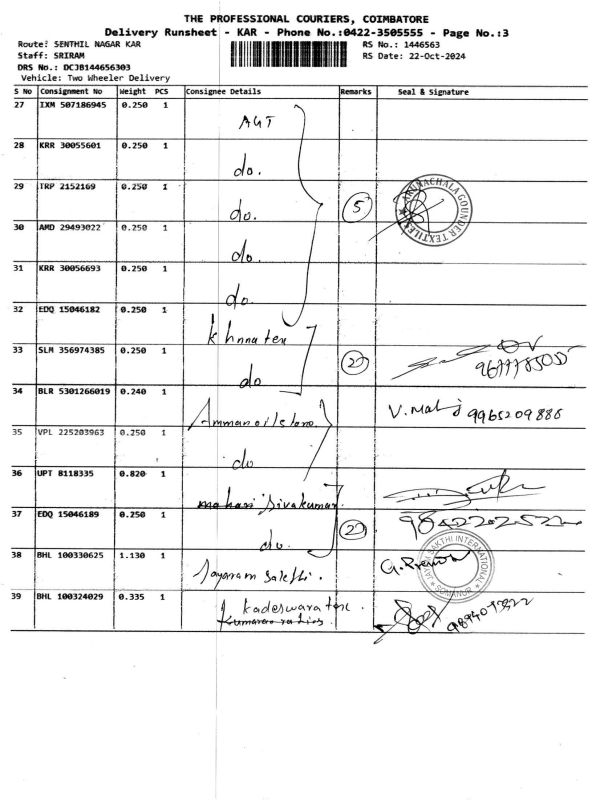 THE PROFESSIONAL COURIERS, COIMBATORE
Delivery Runsheet - KAR - Phone No.:0422-3505555 - Page No.:3
Route: SENTHIL NAGAR KAR RS No.: 1446563
Staff: SRIRAM RS Date: 22-Oct-2024
DRS No.: DC3B144656303
Vehicle: Two Wheeler Delivery
S No Consignment No Weight PCS Consignee Details Remarks Seal & Signature
27 IXM 507186945 0.250 1 AGT
28 KRR 30055601 0.250 1 do.
29 TRP 2152169 0.250 1 do. 5 ARUNACHALA GOUNDER TEXTILES
30 AMD 29493022 0.250 1 do.
31 KRR 30056693 0.250 1 do.
32 EDQ 15046182 0.250 1 khnnatex
33 SLM 356974385 0.250 1 do 2
34 BLR 5301266019 0.240 1 V. Mali 9965209886
35 VPL 225203963 0.250 1 do
36 UPT 8118335 0.820 1 Sivakumar
37 EDQ 15046189 0.250 1 do. 2 9842202522
38 BHL 100330625 1.130 1 Jayaram Sakthi. JAYAM SAKTHI INTERNATIONAL SOMANUR
39 BHL 100324029 0.335 1 kadeswara tex